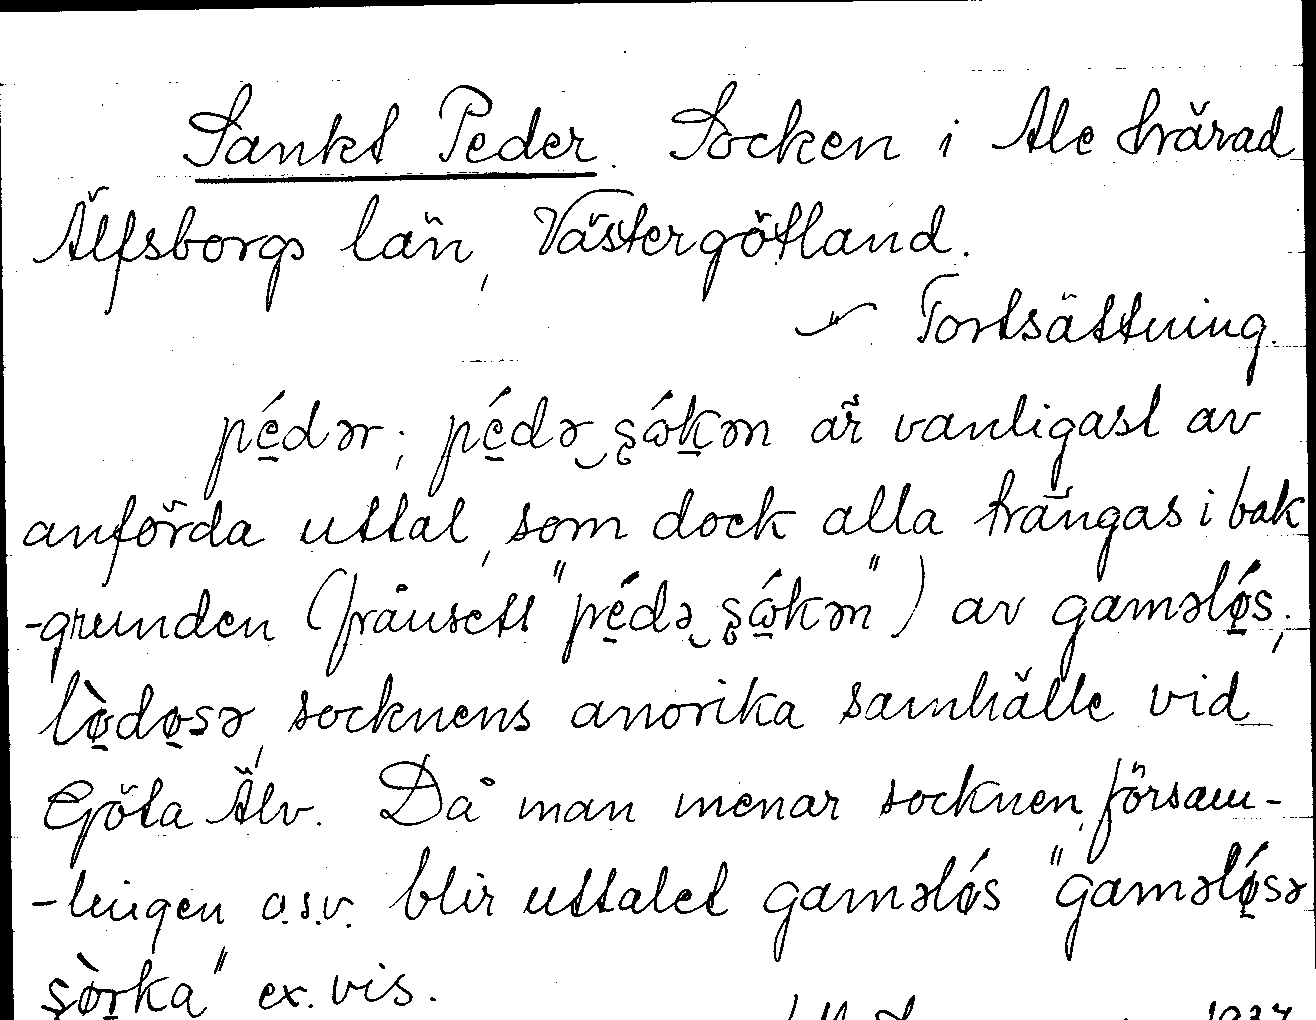 Sankt Peder. Socken i Ale härad
Älfsborgs län, Västergötland.
Fortsättning.
pé̱dər; pé̱də‿şώḵən är vanligast av
anförda uttal, som dock alla trängas i bak
-grunden (frånsett "pé̱də‿şώ̱kən") av gaməlǿ̱s;
lø̱̀dø̱sə, socknens anorika samhälle vid
Göta Älv. Då man menar socknen, försam-
-lingen o.s.v. blir uttalet gaməlǿs "gaməlǿ̱sə
şò̱rka" ex. vis.
1937